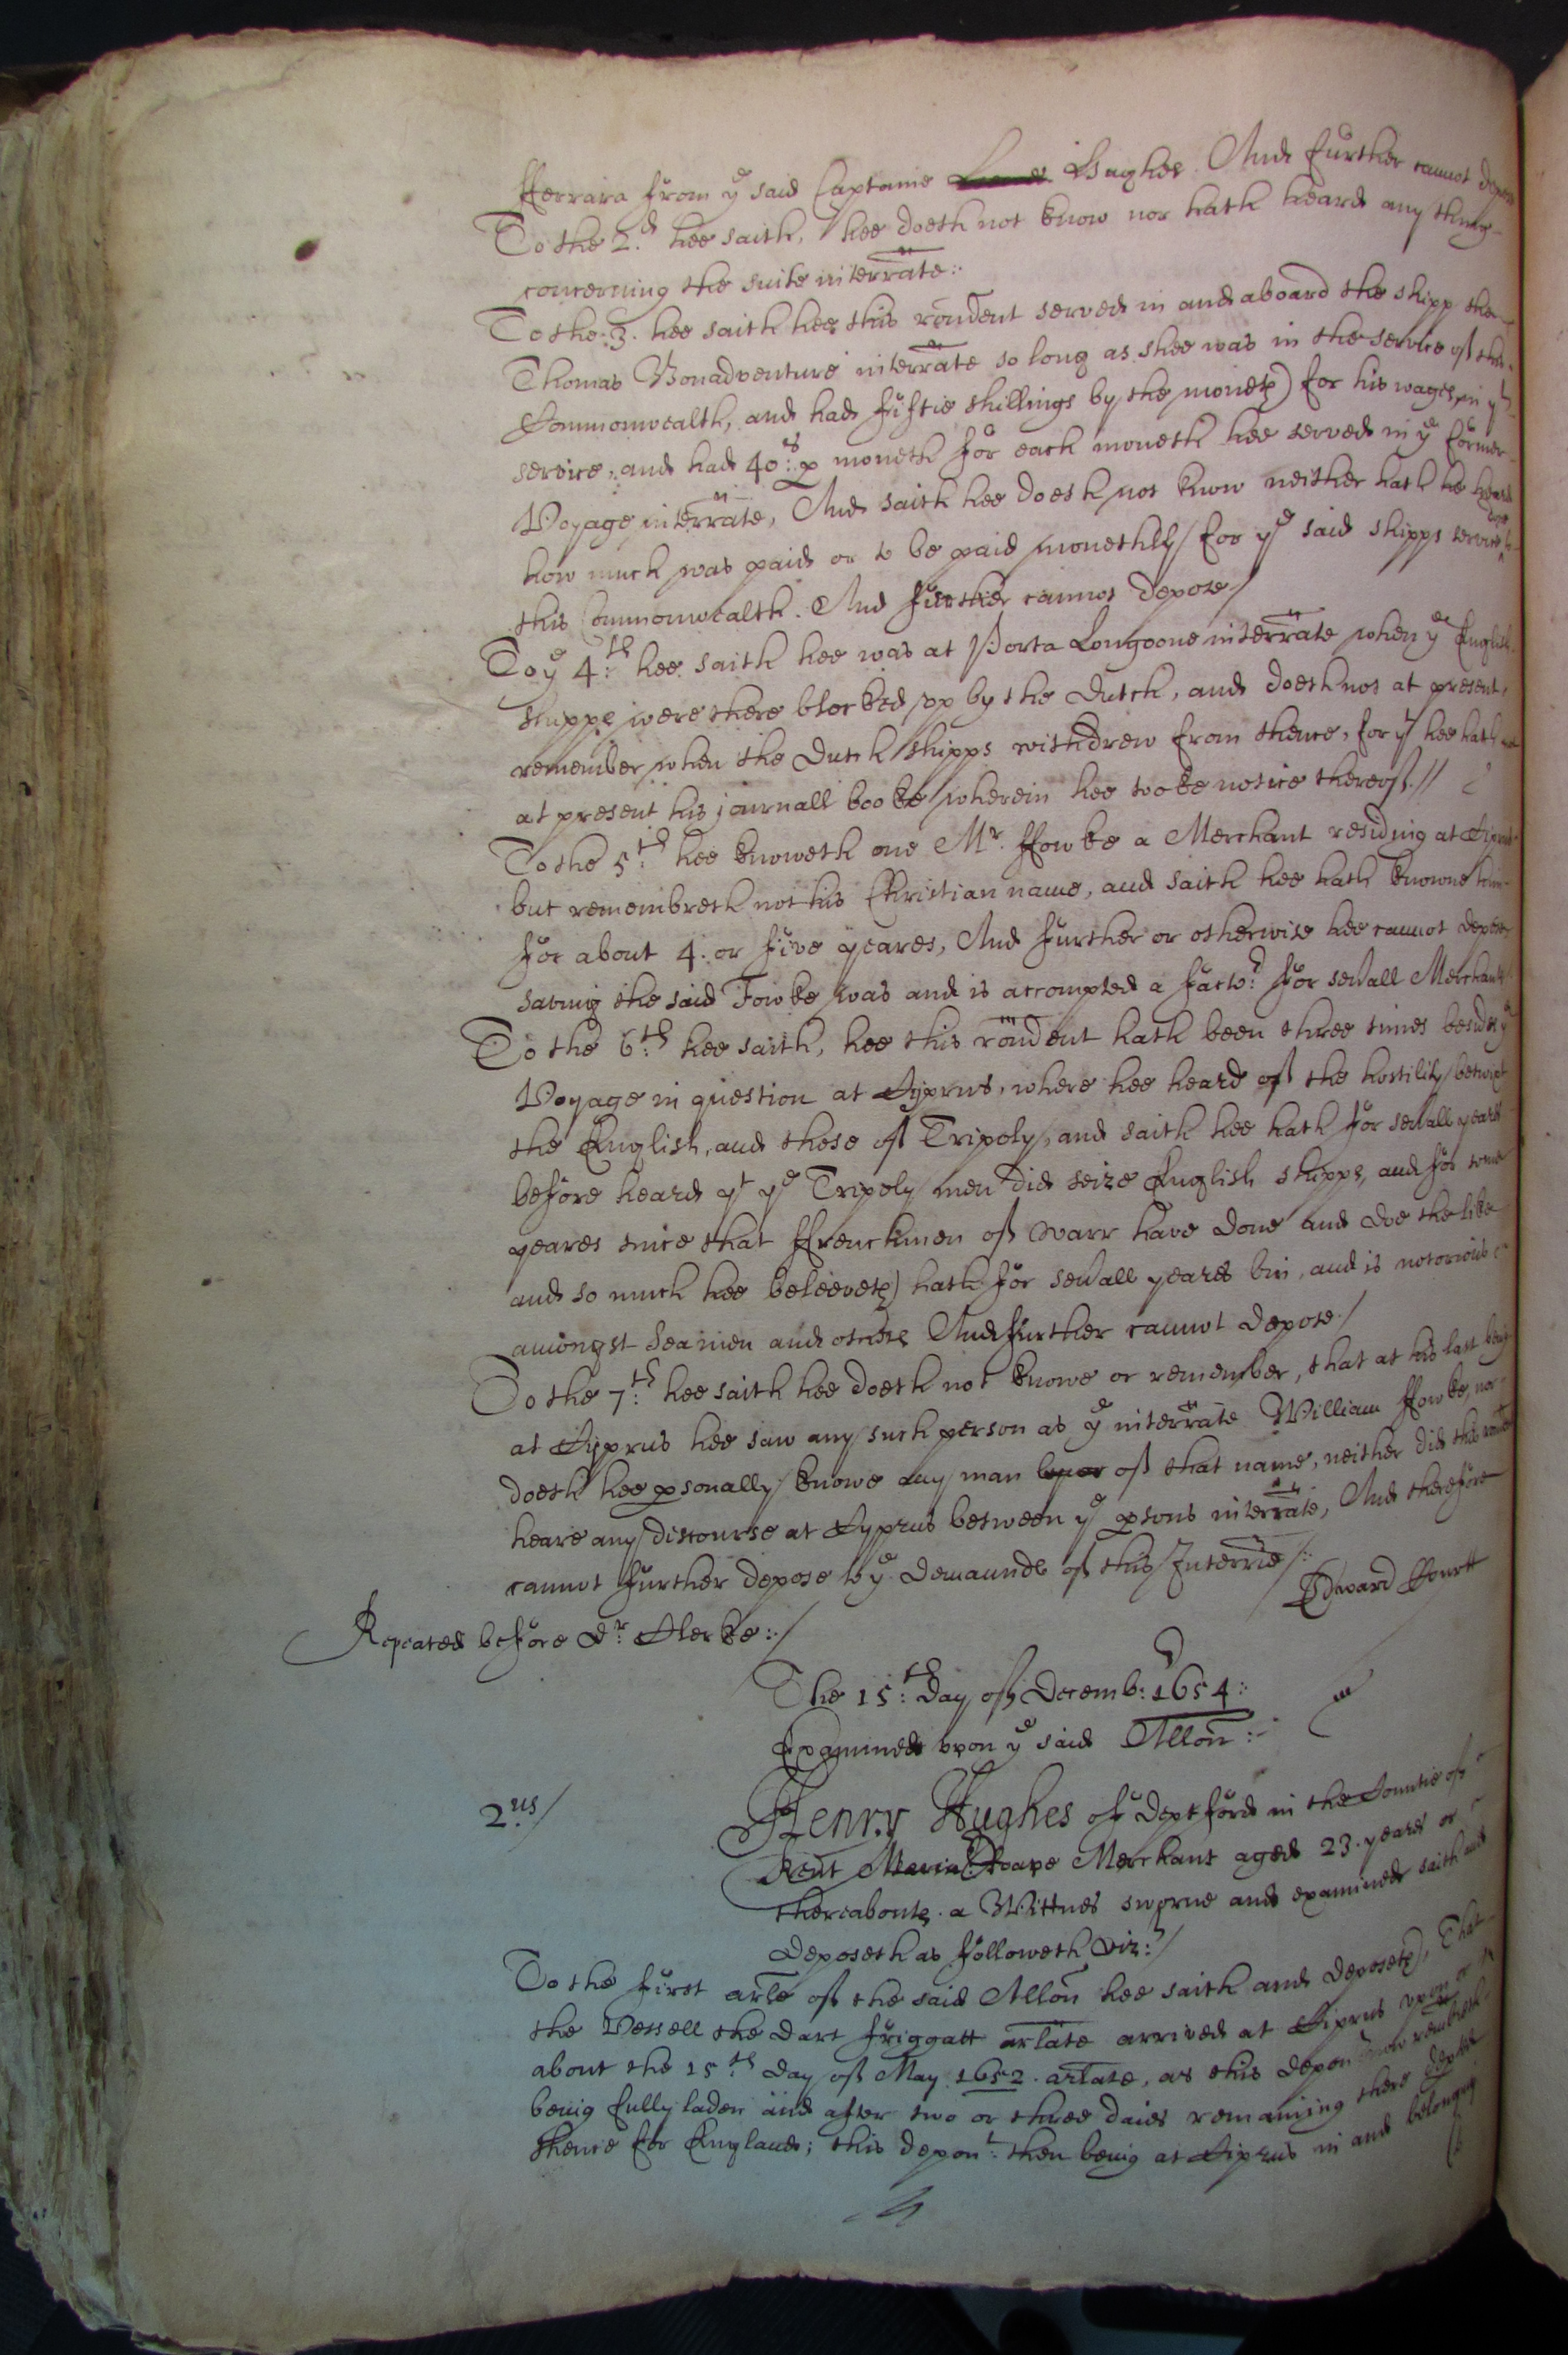 fferrara from ye said Captaine Hughes. And further cannot depose
To the 2:d hee saith, hee doeth not know nor hath heard any thing
concerning the suite interrate:
To the 3. hee saith hee this rondent served in and aboard the shipp the
Thomas Bonadventure interrate so long as shee was in the service of the
Commonwealth, and had fiftie shillings by the moneth for his wages in yt
service, and had 40:s p moneth for each moneth hee served in ye former
Voyage interrate, And saith hee doeth not know neither hath he heard
how much was paid or to be paid monethly for ye said shipps service
this Commonwealth. And further cannot depose /
To ye 4:th hee saith hee was at Porta Longoone interrate when ye English
shipps were there blocked vp by the Dutch, and doeth not at present
remember when the Dutch shipps withdrew from thence, for yt hee hath not
at present his journall booke wherein hee tooke notice thereof. //
To the 5:th hee knoweth one Mr. ffowke a Merchant residing at Ciprus
but remembreth not his Christian name, and saith hee hath knowne him
for about 4. or five yeares, And further or otherwise hee cannot depose
saving the said Fowke was and is accompted a factor for severall Merchants
To the 6:th hee saith, hee this rondent hath been three times besides ye
Voyage in question at Cyprus, where hee heard of the hostility betwixt
the English, and those of Tripoly, and saith hee hath for severall yeares
before heard yt ye Tripoly men did seize English shipps, and for some
yeares since that ffrenchmen of warr have done and doe the like
and so much hee beleeveth hath for severall yeares bin, and is notorious
amongst Seamen and others And further cannot depose. /
To the 7:th hee saith hee doeth not knowe or remember, that at his last being
at Cyprus hee saw any such person as ye interrate William ffowke, nor
doeth hee psonally knowe any man of that name, neither did this rondent
heare any discourse at Cyprus between ye psons interrate, And therefore
cannot further depose to ye demaunds of this Interrie /:
Edward Courtt
Repeated before Dr. Clerke: /
The 15:th Day of Decemb: 1654:
Examined vpon ye said Allon:
2.us /
Henry Hughes of Deptford in the Countie of
Kent Merchant aged 23. yeares or
thereabouts. a Wittnes sworne and examined saith and
deposeth as followeth Viz: /
To the first arle of the said Allon hee saith and deposeth, That
the Vessell the Dart friggatt arlate arrived at Ciprus vpon or
about the 15:th day of May 1652. arlate, as this depont now remembreth
being fully laden and after two or three daies remaining there depted
thence for England; this depont: then being at Ciprus in and belonging